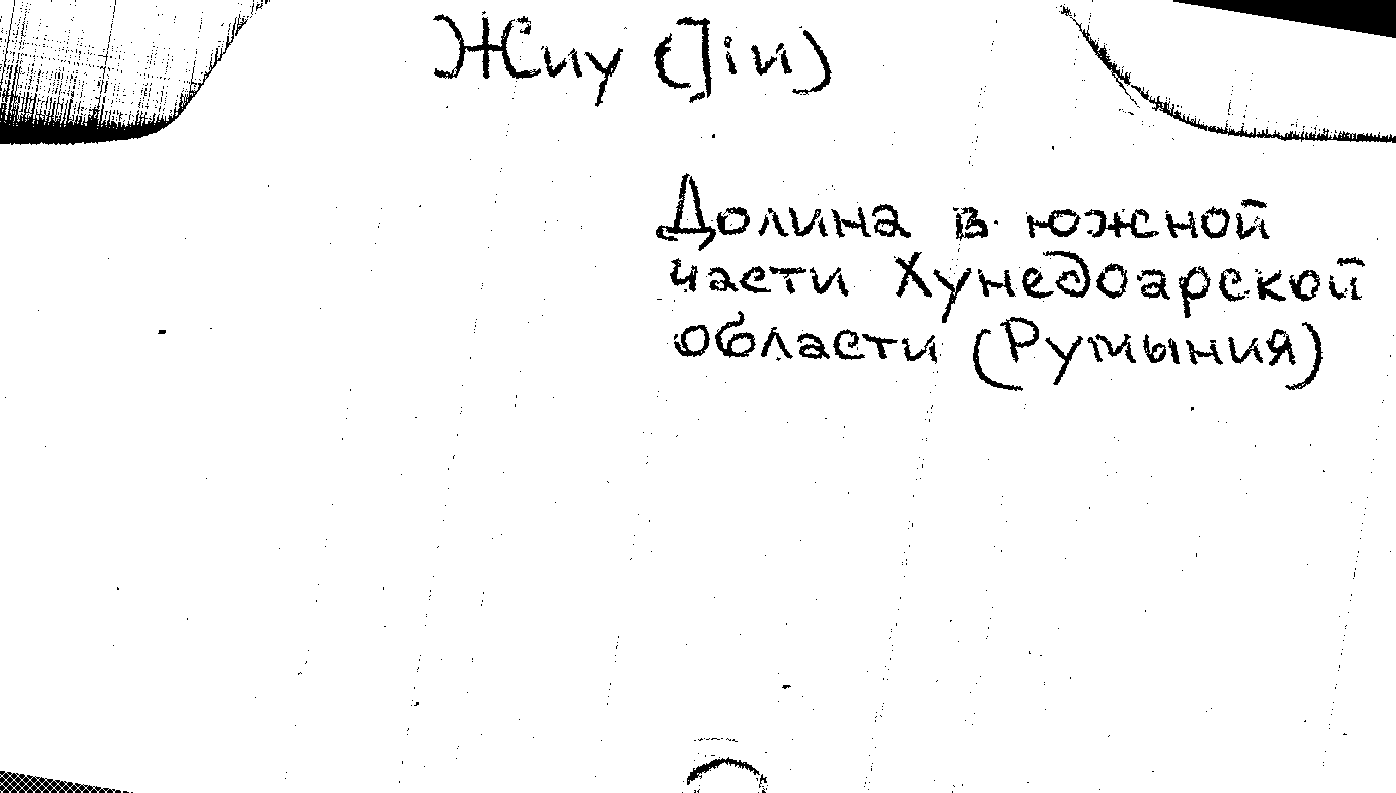 Жиу (Jiu)
Долина в южной
части Хунедоарской
области (Румыния)